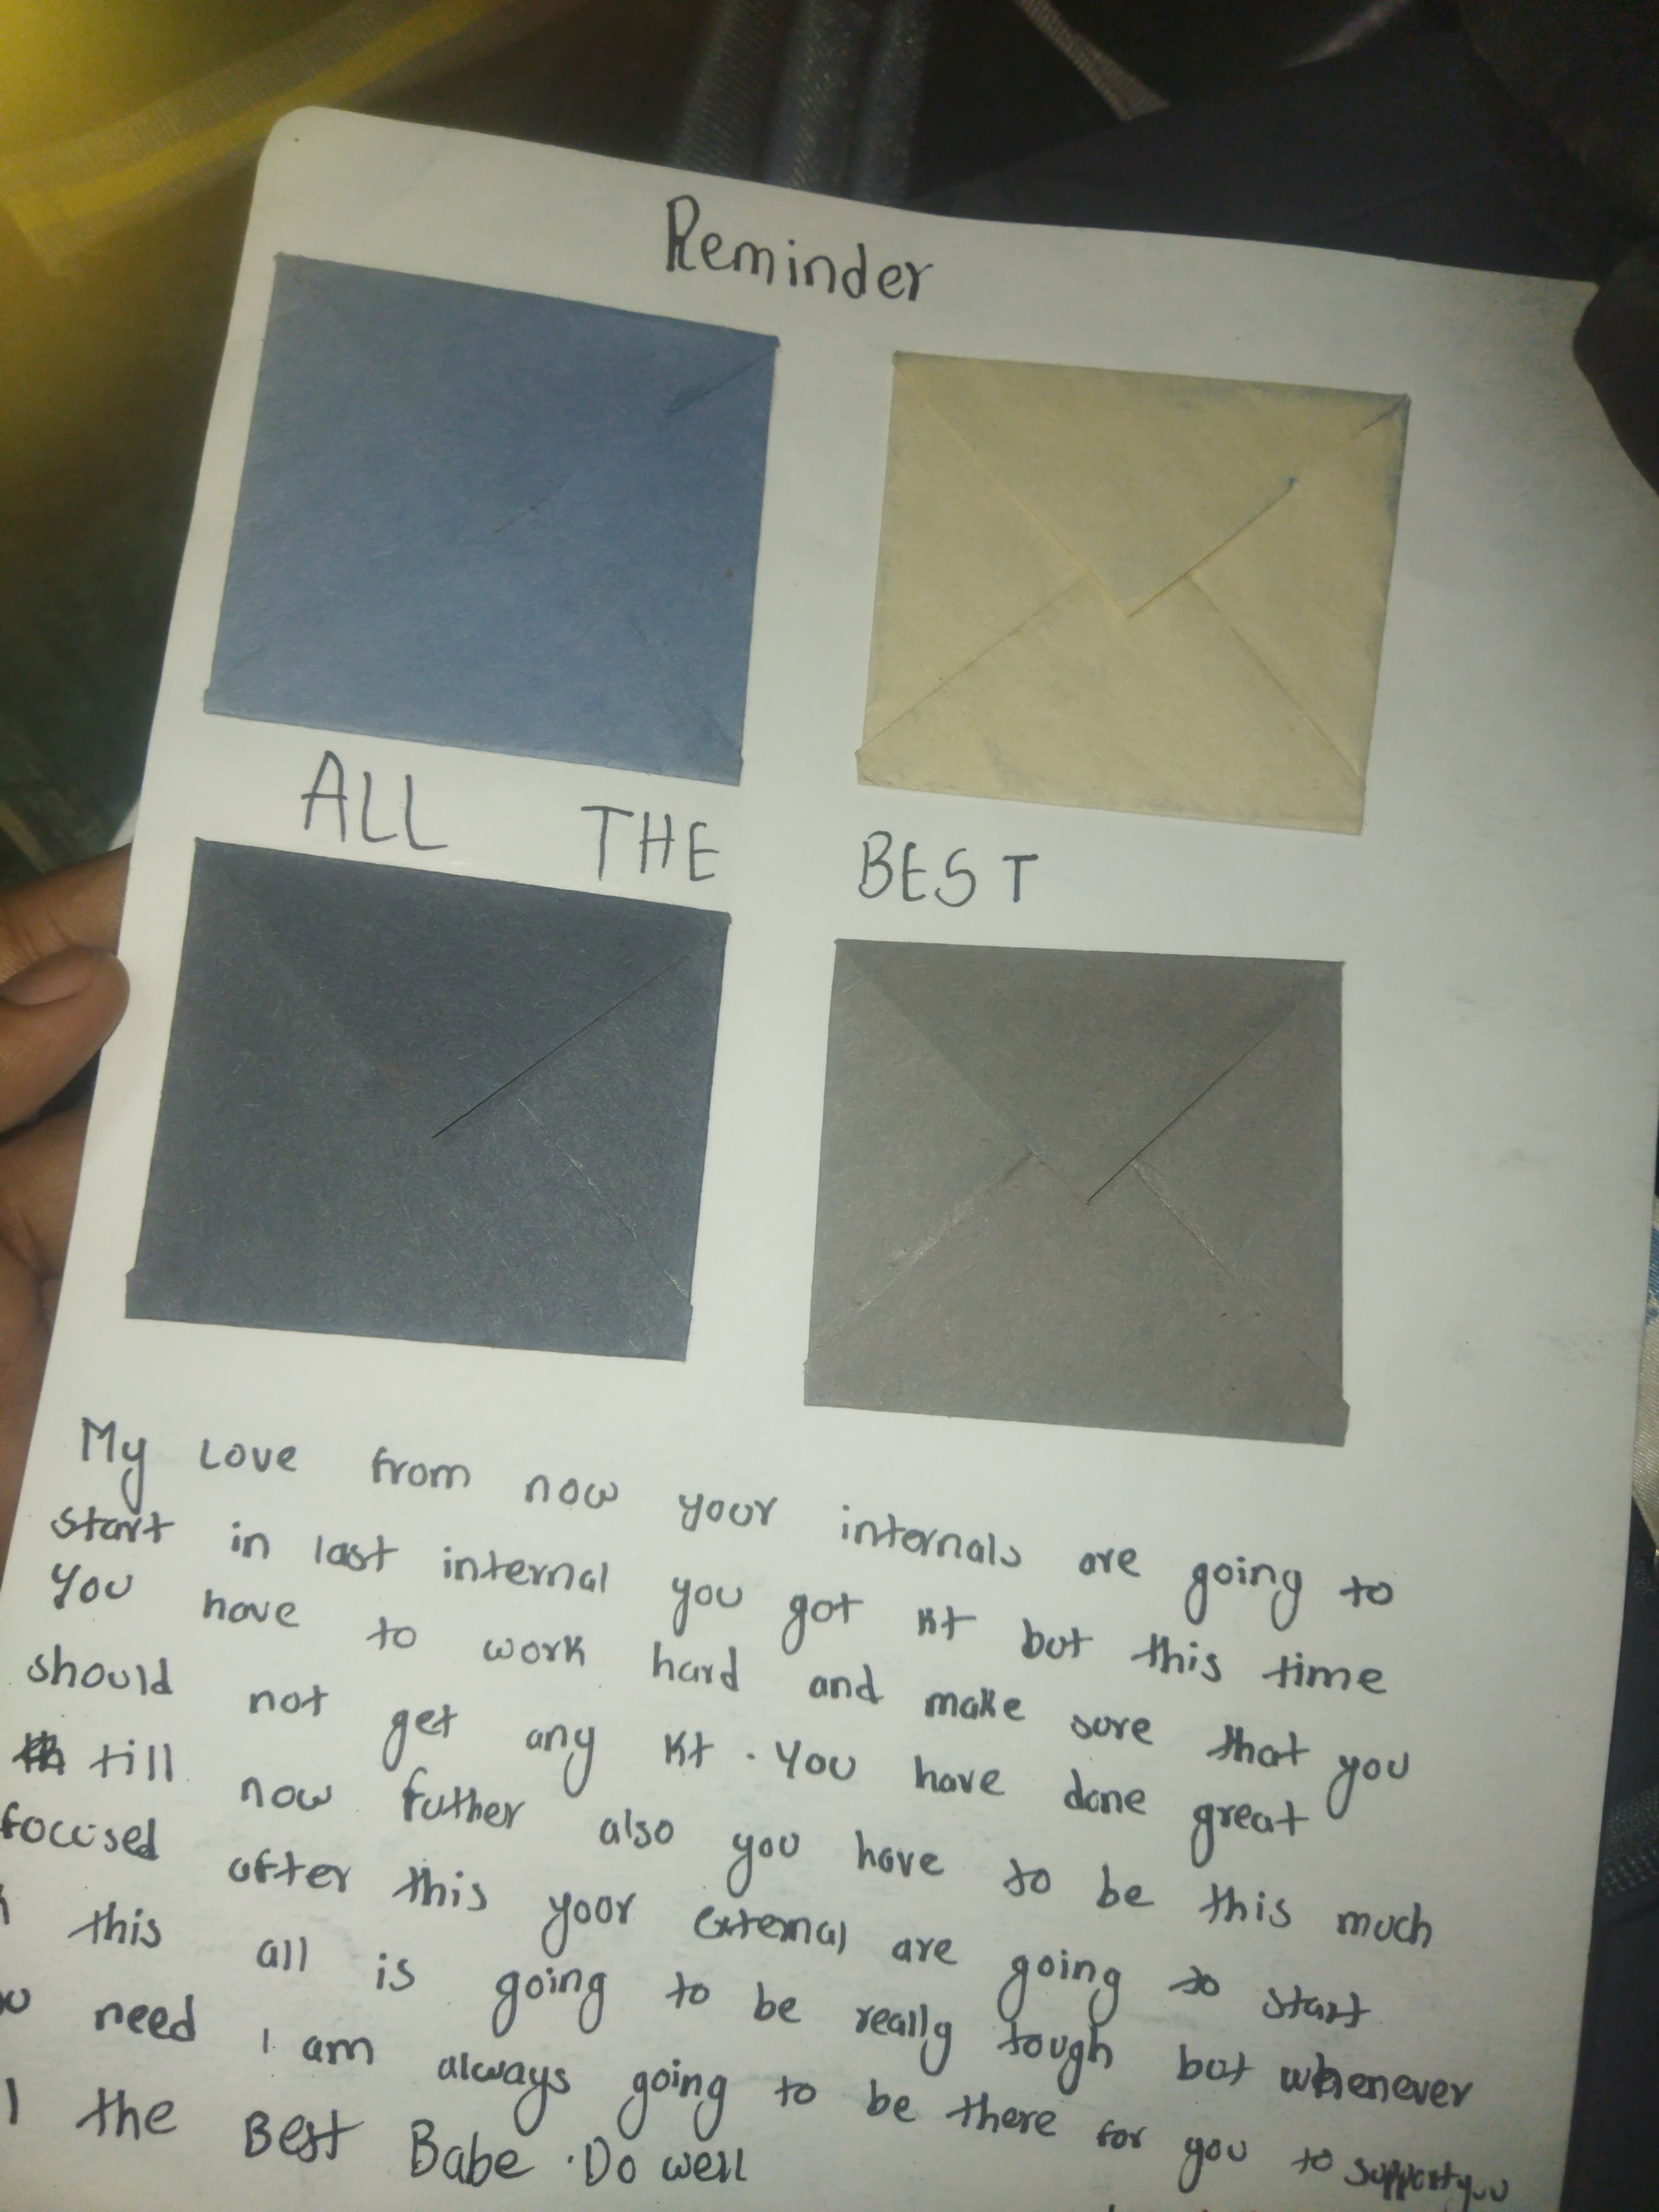 Reminder
ALL THE BEST
My Love from now your internals are going to
start in last internal you got kt but this time
you have to work hard and make sure that you
should not get any kt . You have done great
till now futher also you have to be this much
focused after this your external are going to start
this all is going to be really tough but whenever
need I am always going to be there for you to support you
the Best Babe . Do well